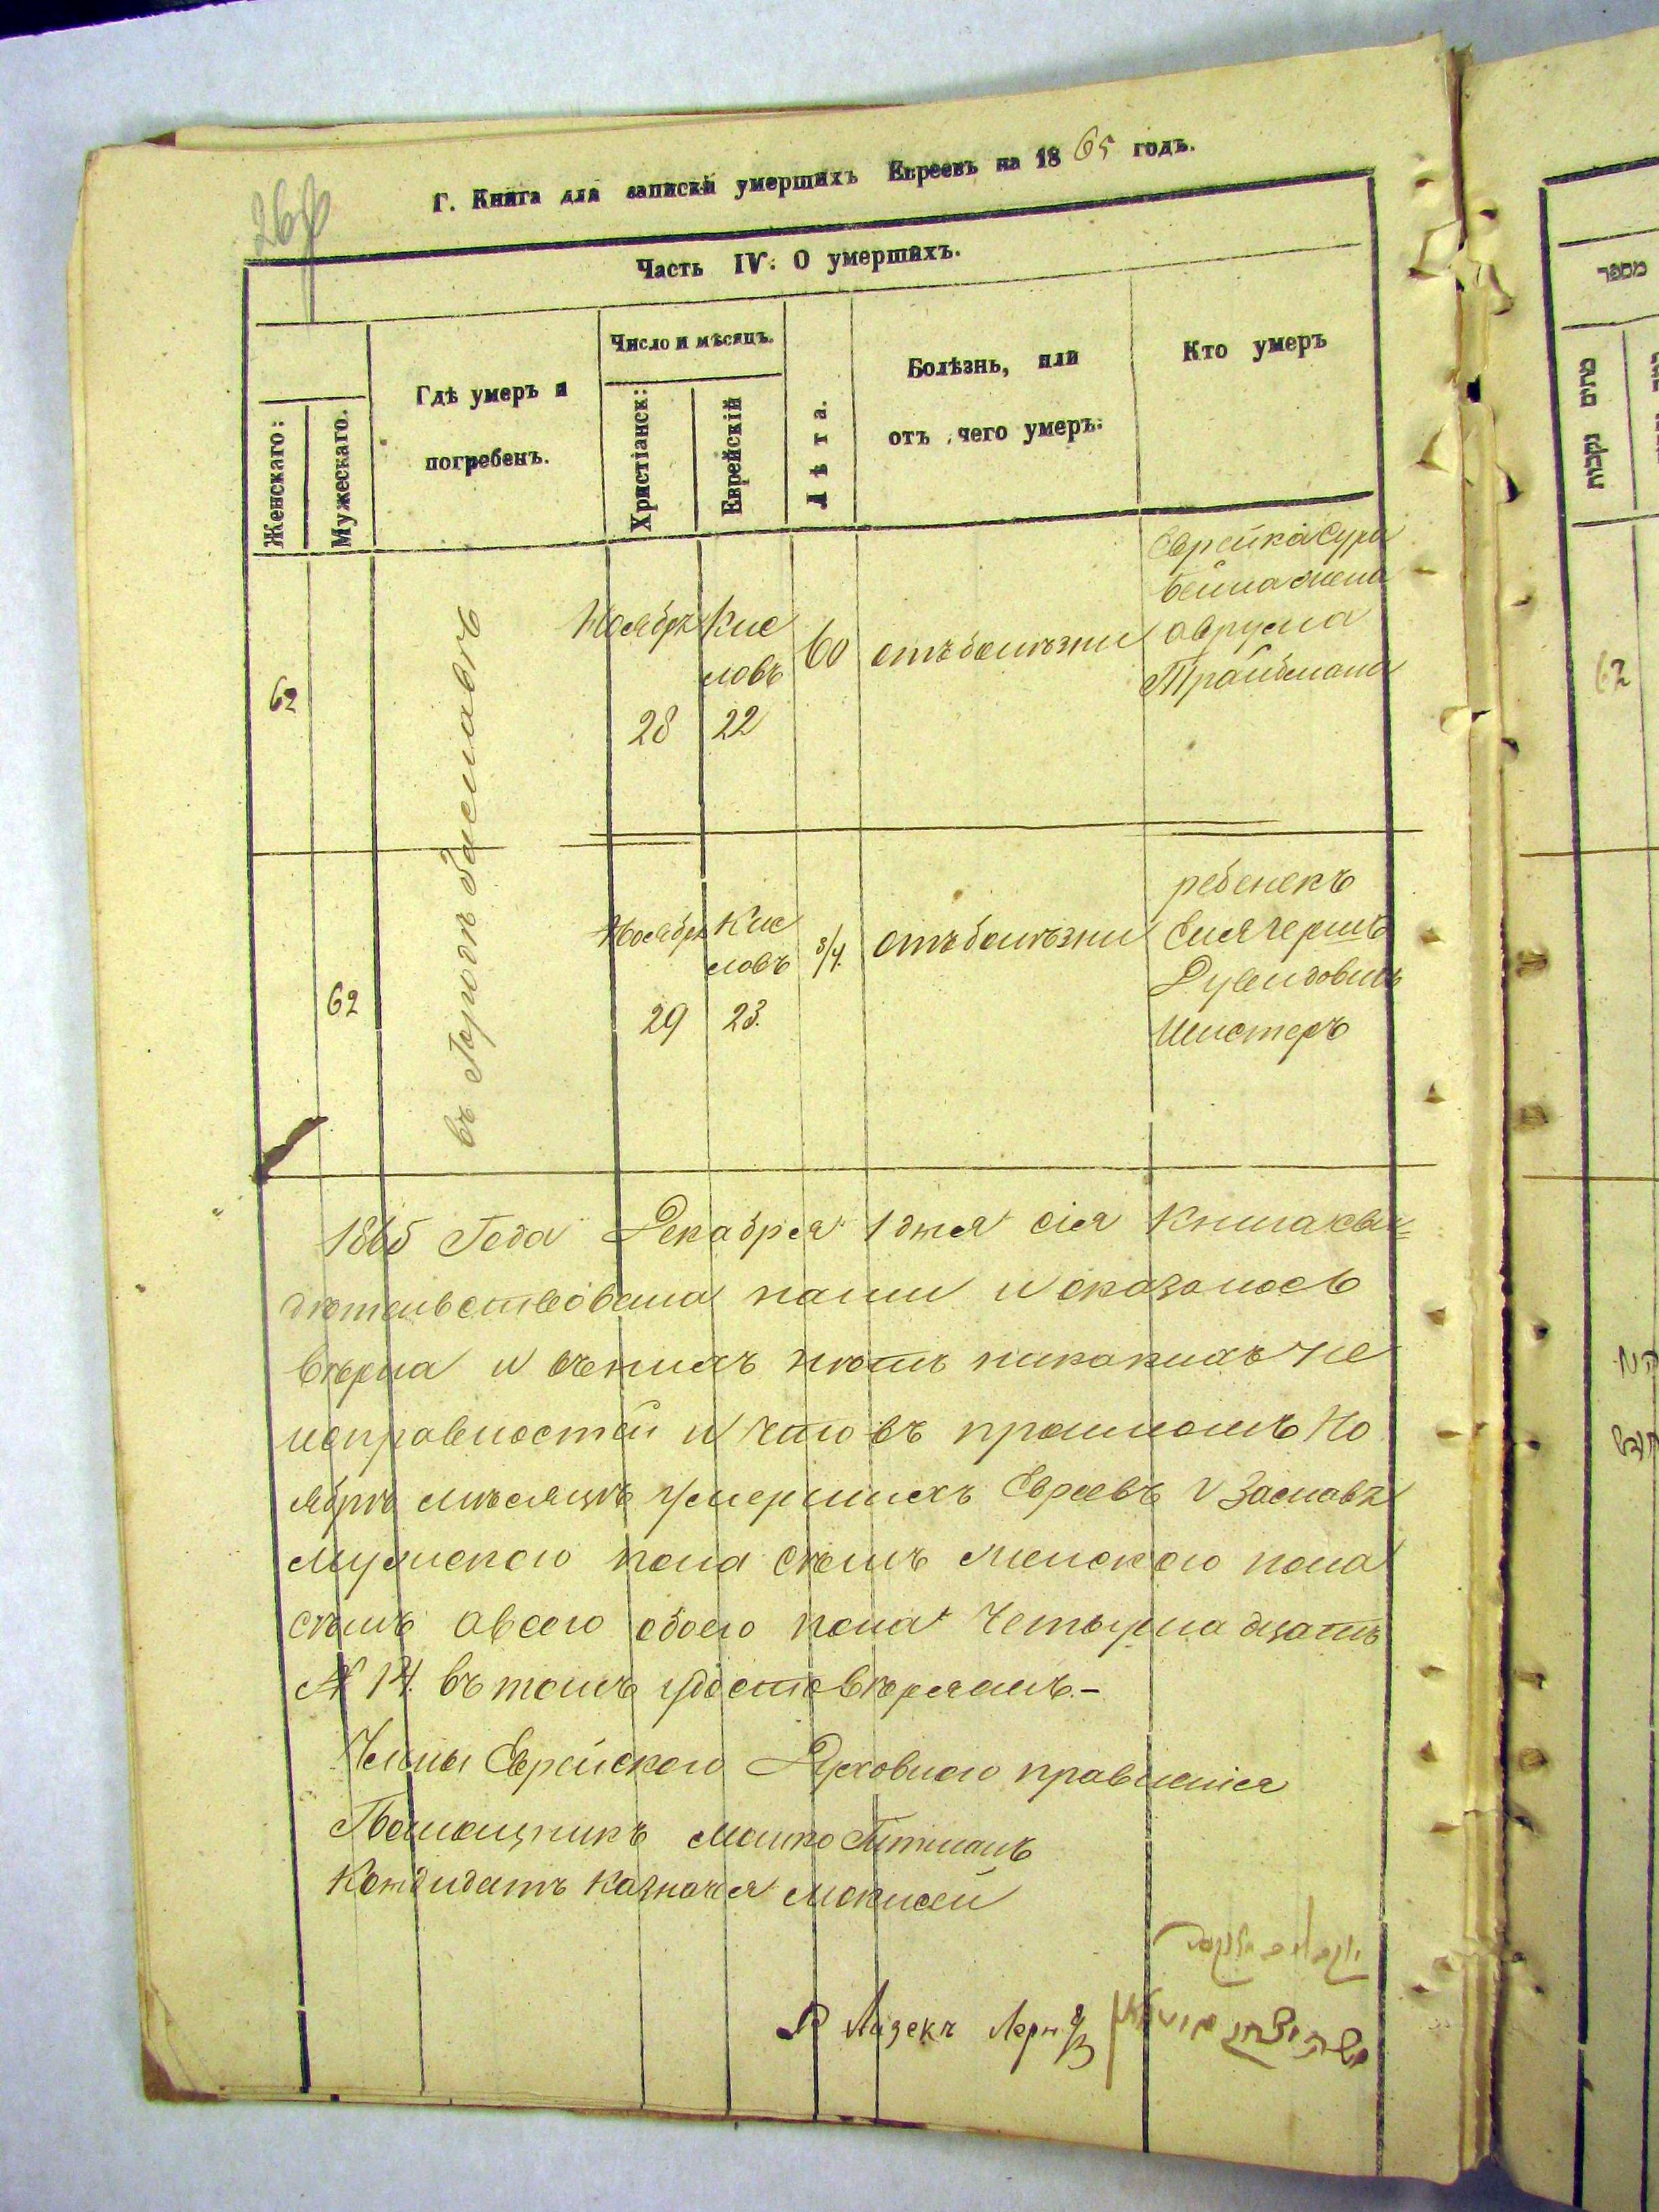 Г. Книга для записки умершихъ Евреевъ на 1865 годъ.
Часть IV. О умершихъ.
Женскаго:
Мужескаго.
Гдѣ умеръ и
погребенъ.
Число и мѣсяцъ.
Христіанск:
Еврейскій
Лѣта.
Болѣзнь, или
отъ чего умеръ:
Кто умеръ
62
въ Городѣ Заславѣ
Ноябрь
28
Кис
ловъ
22
60
отъ болѣзни
Еврейка Сура
Бейла жена
Аврума
62
Ноябрь
29
Кис
ловъ
23.
3/4.
отъ болѣзни
ребенекъ
Шистеръ
1865 Года Декабря 1 дня сія Книга свы=
дѣтельствована нами и оказалось
вѣрна и въ нихъ нѣтъ никакихъ не
исправностей и что въ прошломъ Но
ябрѣ мѣсяцѣ умершихъ Евреевъ г Заславѣ
мужского пола семъ женского пола
семъ а всего обоего пола четырнадцать
№ 14. въ томъ удостовѣряемъ.-
Члены Еврейского Духовного правленія
Помощникъ Мошко
Кандидатъ Казначея
Р Айзекъ
מספר
מתים נקבות
62